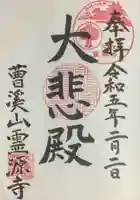 奉拝
令和五年二月二日
大悲殿
曹溪山靈源寺